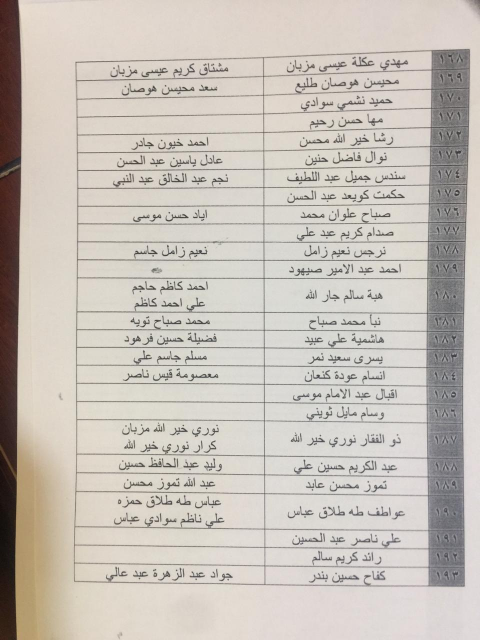 ١٦٨ مهدي عكلة عيسى مزبان مشتاق كريم عيسى مزبان
١٦٩ محيسن هوصان طليع سعد محيسن هوصان
١٧٠ حميد نشمي سوادي
١٧١ مها حسن رحيم
١٧٢ رشا خير الله محسن احمد خيون جادر
١٧٣ نوال فاضل حنين عادل ياسين عبد الحسن
١٧٤ سندس جميل عبد اللطيف نجم عبد الخالق عبد النبي
١٧٥ حكمت كويعد عبد الحسن
١٧٦ صباح علوان محمد اياد حسن موسى
١٧٧ صدام كريم عبد علي
١٧٨ نرجس نعيم زامل نعيم زامل جاسم
١٧٩ احمد عبد الامير صيهود
١٨٠ هبة سالم جار الله احمد كاظم حاجم
علي احمد كاظم
١٨١ نبأ محمد صباح محمد صباح تويه
١٨٢ هاشمية علي عبيد فضيلة حسين فرهود
١٨٣ يسرى سعيد نمر مسلم جاسم علي
١٨٤ انسام عودة كنعان معصومة قيس ناصر
١٨٥ اقبال عبد الامام موسى
١٨٦ وسام مايل ثويني
١٨٧ ذو الفقار نوري خير الله نوري خير الله مزبان
كرار نوري خير الله
١٨٨ عبد الكريم حسين علي وليد عبد الحافظ حسين
١٨٩ تموز محسن عابد عبد الله تموز محسن
١٩٠ عواطف طه طلاق عباس عباس طه طلاق حمزه
علي ناظم سوادي عباس
١٩١ علي ناصر عبد الحسين
١٩٢ رائد كريم سالم
١٩٣ كفاح حسين بندر جواد عبد الزهرة عبد عالي